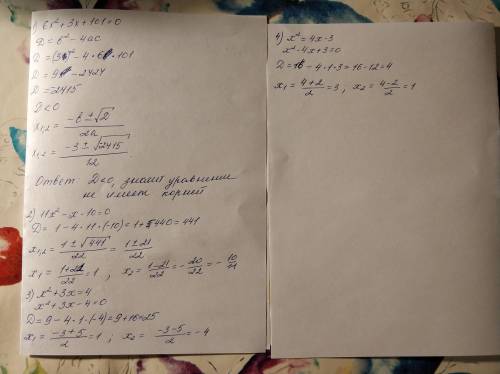 1) 6x² + 3x + 101 = 0
D = b² - 4ac
D = (3)² - 4 · 6 · 101
D = 9 - 2424
D = 2415
D < 0
x₁,₂ = (-b ± √D) / 2a
x₁,₂ = (-3 ± √-2415) / 12
Ответ: D<0, значит уравнение
не имеет корней
2) 11x² - x - 10 = 0
D = 1 - 4 · 11 · (-10) = 1 + 440 = 441
x₁,₂ = (1 ± √441) / 22 = (1 ± 21) / 22
x₁ = (1 + 21) / 22 = 1 , x₂ = (1 - 21) / 22 = - 20/22 = - 10/11
3) x² + 3x = 4
x² + 3x - 4 = 0
D = 9 - 4 · 1 · (-4) = 9 + 16 = 25
x₁ = (-3 + 5) / 2 = 1 ; x₂ = (-3 - 5) / 2 = -4
4) x² = 4x - 3
x² - 4x + 3 = 0
D = 16 - 4 · 1 · 3 = 16 - 12 = 4
x₁ = (4 + 2) / 2 = 3 ; x₂ = (4 - 2) / 2 = 1